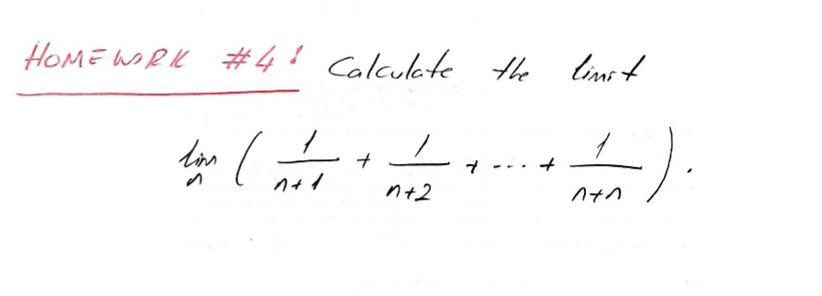 HOMEWORK #4: Calculate the limit
lim n ( 1/(n+1) + 1/(n+2) + ... + 1/(n+n) ).